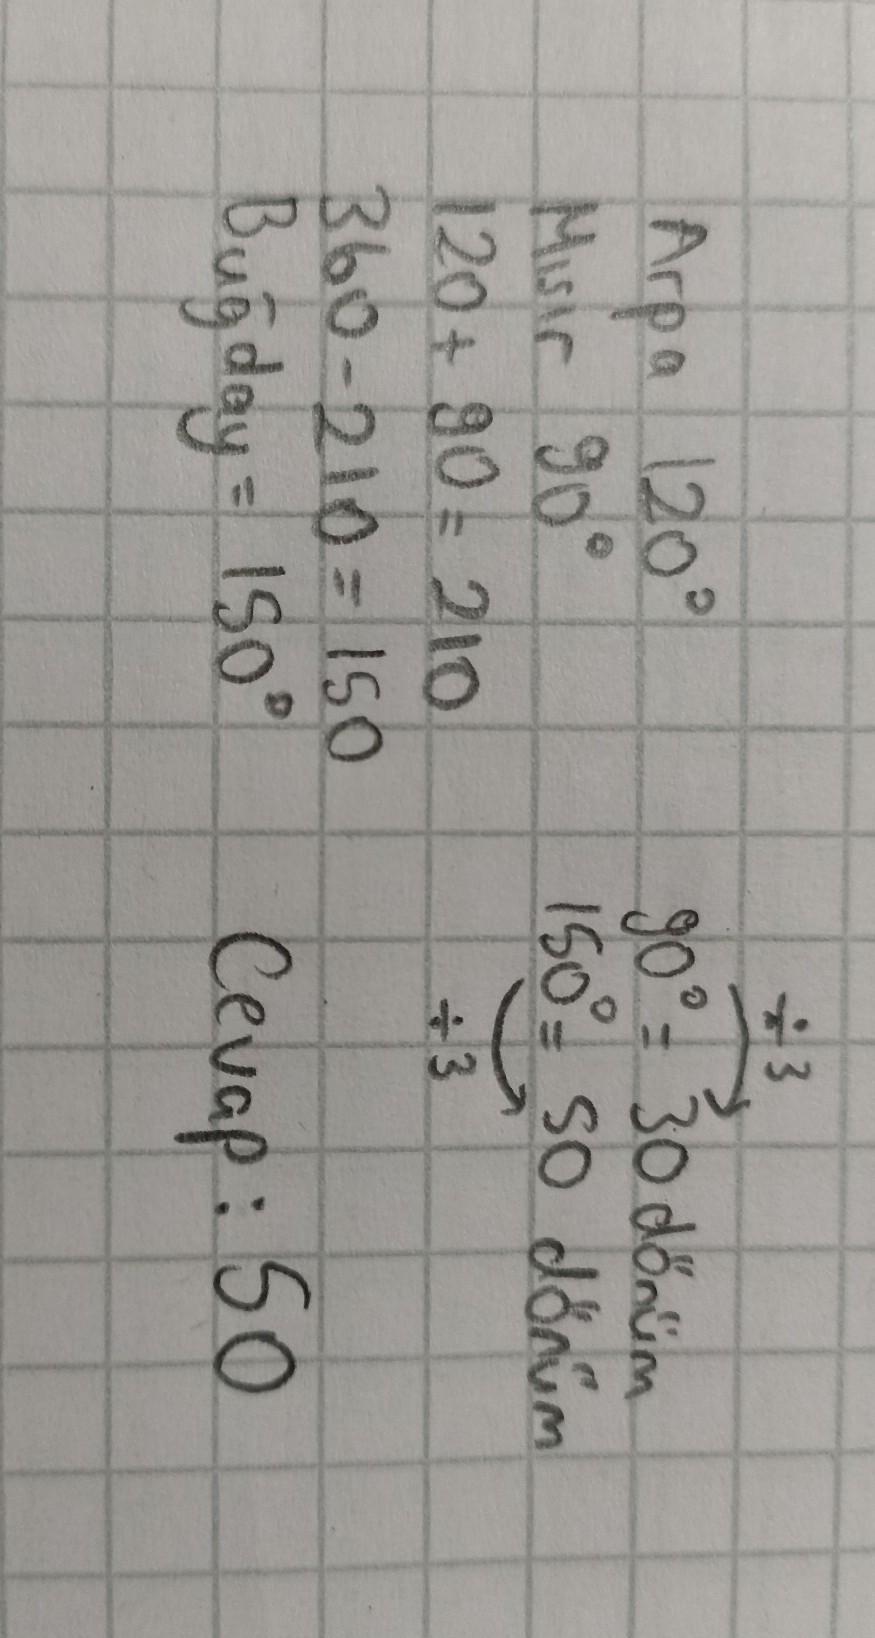 Arpa 120°
Mısır 90°
120 + 90 = 210
360 - 210 = 150
Buğday = 150°
÷3
90° = 30 dönüm
150° = 50 dönüm
÷3
Cevap : 50